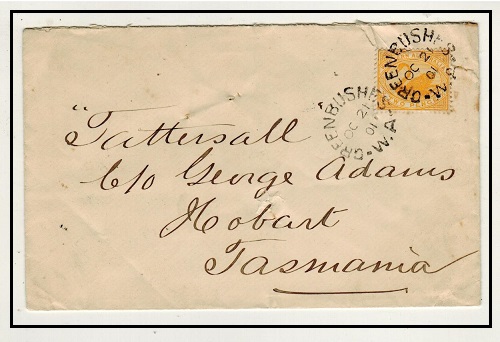 GREENBUSHES
OC 21
01
W.A.
GREENBUSHES
OC 21
01
W.A.
TWO PENCE
"Tattersall
C/o George Adams
Hobart
Tasmania